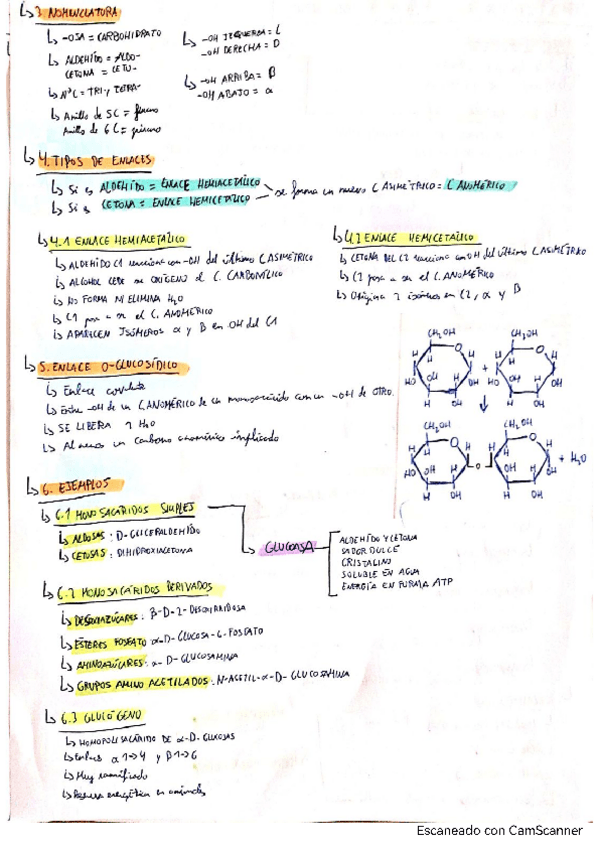 3 NOMENCLATURA
-OSA = CARBOHIDRATO
ALDEHÍDO = ALDO-
CETONA = CETO-
NºC = TRI- y TETRA-
Anillo de 5C = furano
Anillo de 6C = pirano
-OH IZQUIERDA = L
-OH DERECHA = D
-OH ARRIBA = β
-OH ABAJO = α
4. TIPOS DE ENLACES
Si es ALDEHÍDO = ENLACE HEMIACETÁLICO
Si es CETONA = ENLACE HEMICETÁLICO
se forma un nuevo C ASIMÉTRICO = C ANOMÉRICO
4.1 ENLACE HEMIACETÁLICO
ALDEHÍDO C1 reacciona con -OH del último C ASIMÉTRICO
ALCOHOL CEDE su OXÍGENO al C. CARBONÍLICO
NO FORMA NI ELIMINA H2O
C1 pasa a ser el C. ANOMÉRICO
APARECEN ISÓMEROS α y β en OH del C1
4.2 ENLACE HEMICETÁLICO
CETONA DEL C2 reacciona con OH del último C ASIMÉTRICO
C2 pasa a ser el C. ANOMÉRICO
Origina 2 isómeros en C2, α y β
5. ENLACE O-GLUCOSÍDICO
Enlace covalente
Entre -OH de un C. ANOMÉRICO de un monosacárido con un -OH de OTRO.
SE LIBERA 1 H2O
Al menos un carbono anomérico implicado
CH2OH CH2OH
O + O
H H H H
HO OH OH HO OH OH
H OH H OH
CH2OH CH2OH
O O
HO OH O OH OH + H2O
H OH H OH
6. EJEMPLOS
6.1 MONOSACÁRIDOS SIMPLES
ALDOSAS: D-GLICERALDEHÍDO
CETOSAS: DIHIDROXIACETONA
GLUCOASA
ALDEHÍDO Y CETONA
SABOR DULCE
CRISTALINO
SOLUBLE EN AGUA
ENERGÍA EN FORMA ATP
6.2 MONOSACÁRIDOS DERIVADOS
DESOXIAZÚCARES: β-D-2-DESOXIRRIBOSA
ÉSTERES FOSFATO: α-D-GLUCOSA-6-FOSFATO
AMINOAZÚCARES: α-D-GLUCOSAMINA
GRUPOS AMINO ACETILADOS: N-ACETIL-α-D-GLUCOSAMINA
6.3 GLUCÓGENO
HOMOPOLISACÁRIDO DE α-D-GLUCOSAS
Enlaces α 1→4 y β 1→6
Muy ramificado
Reserva energética en animales
Escaneado con CamScanner